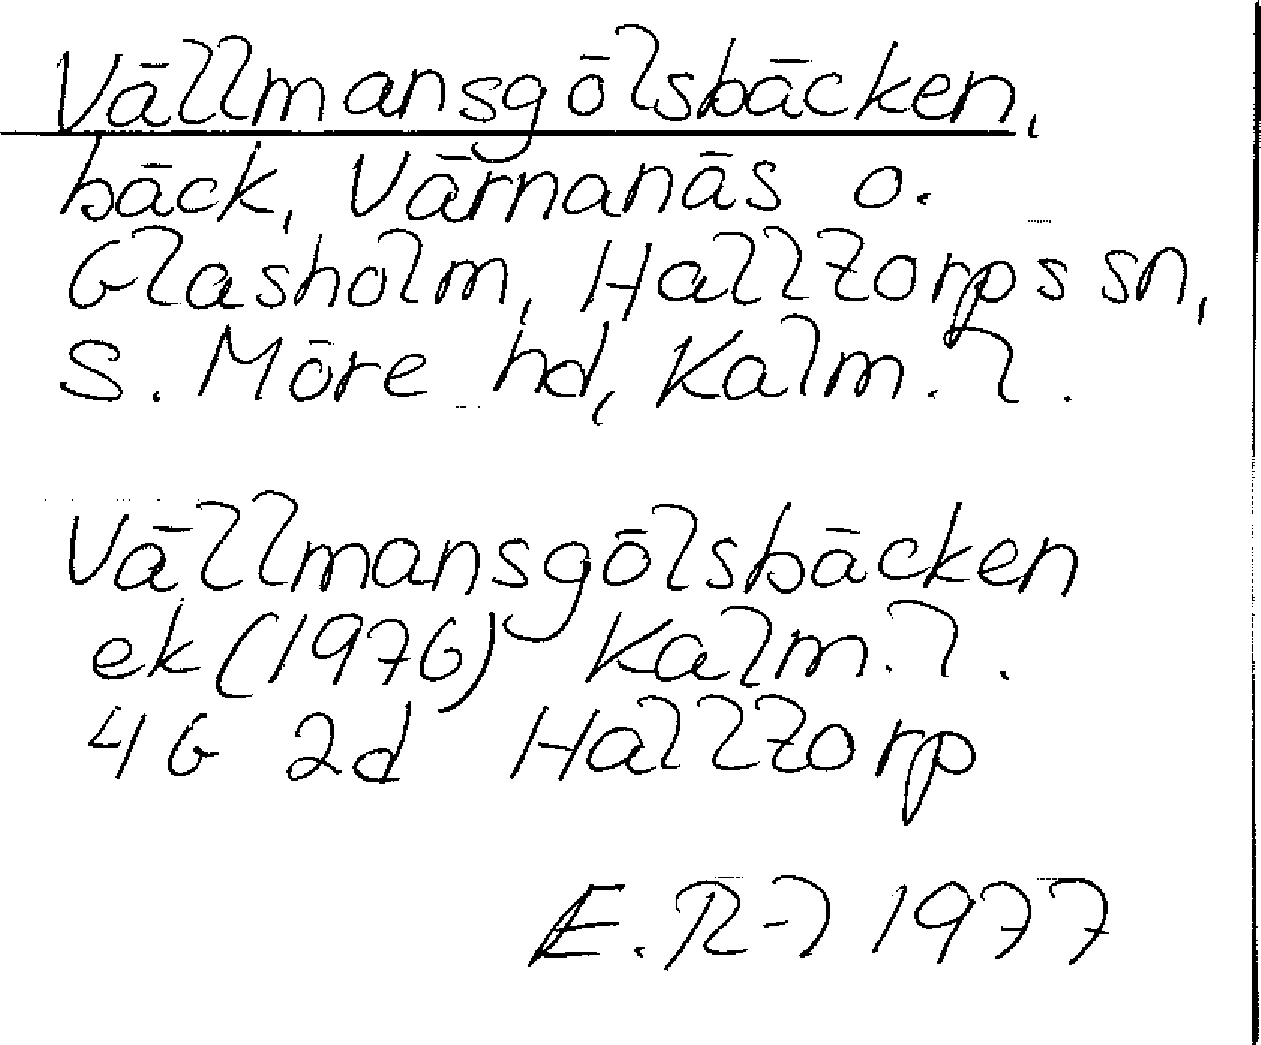 Vällmansgölsbäcken,
bäck, Värnanäs o.
Glasholm, Halltorps sn,
S. Möre hd, Kalm. l.
Vällmansgölsbäcken
ek (1976) Kalm. l.
4G 2d Halltorp
E. R-l 1977